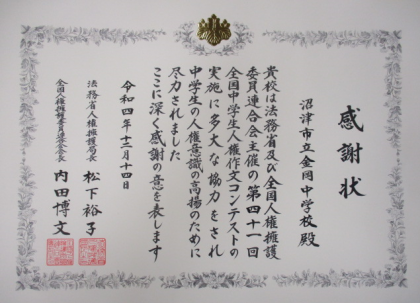 感謝状
沼津市立金岡中学校殿
貴校は法務省及び全国人権擁護
委員連合会主催の第四十一回
全国中学生人権作文コンテストの
実施に多大な協力をされ
中学生の人権意識の高揚のために
尽力されました
ここに深く感謝の意を表します
令和四年十二月十四日
法務省人権擁護局長 松下裕子
全国人権擁護委員連合会会長 内田博文